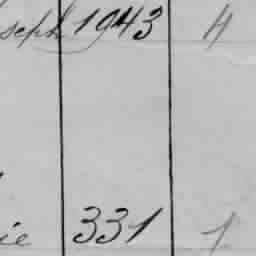 seph 1943 4
ie 331 1